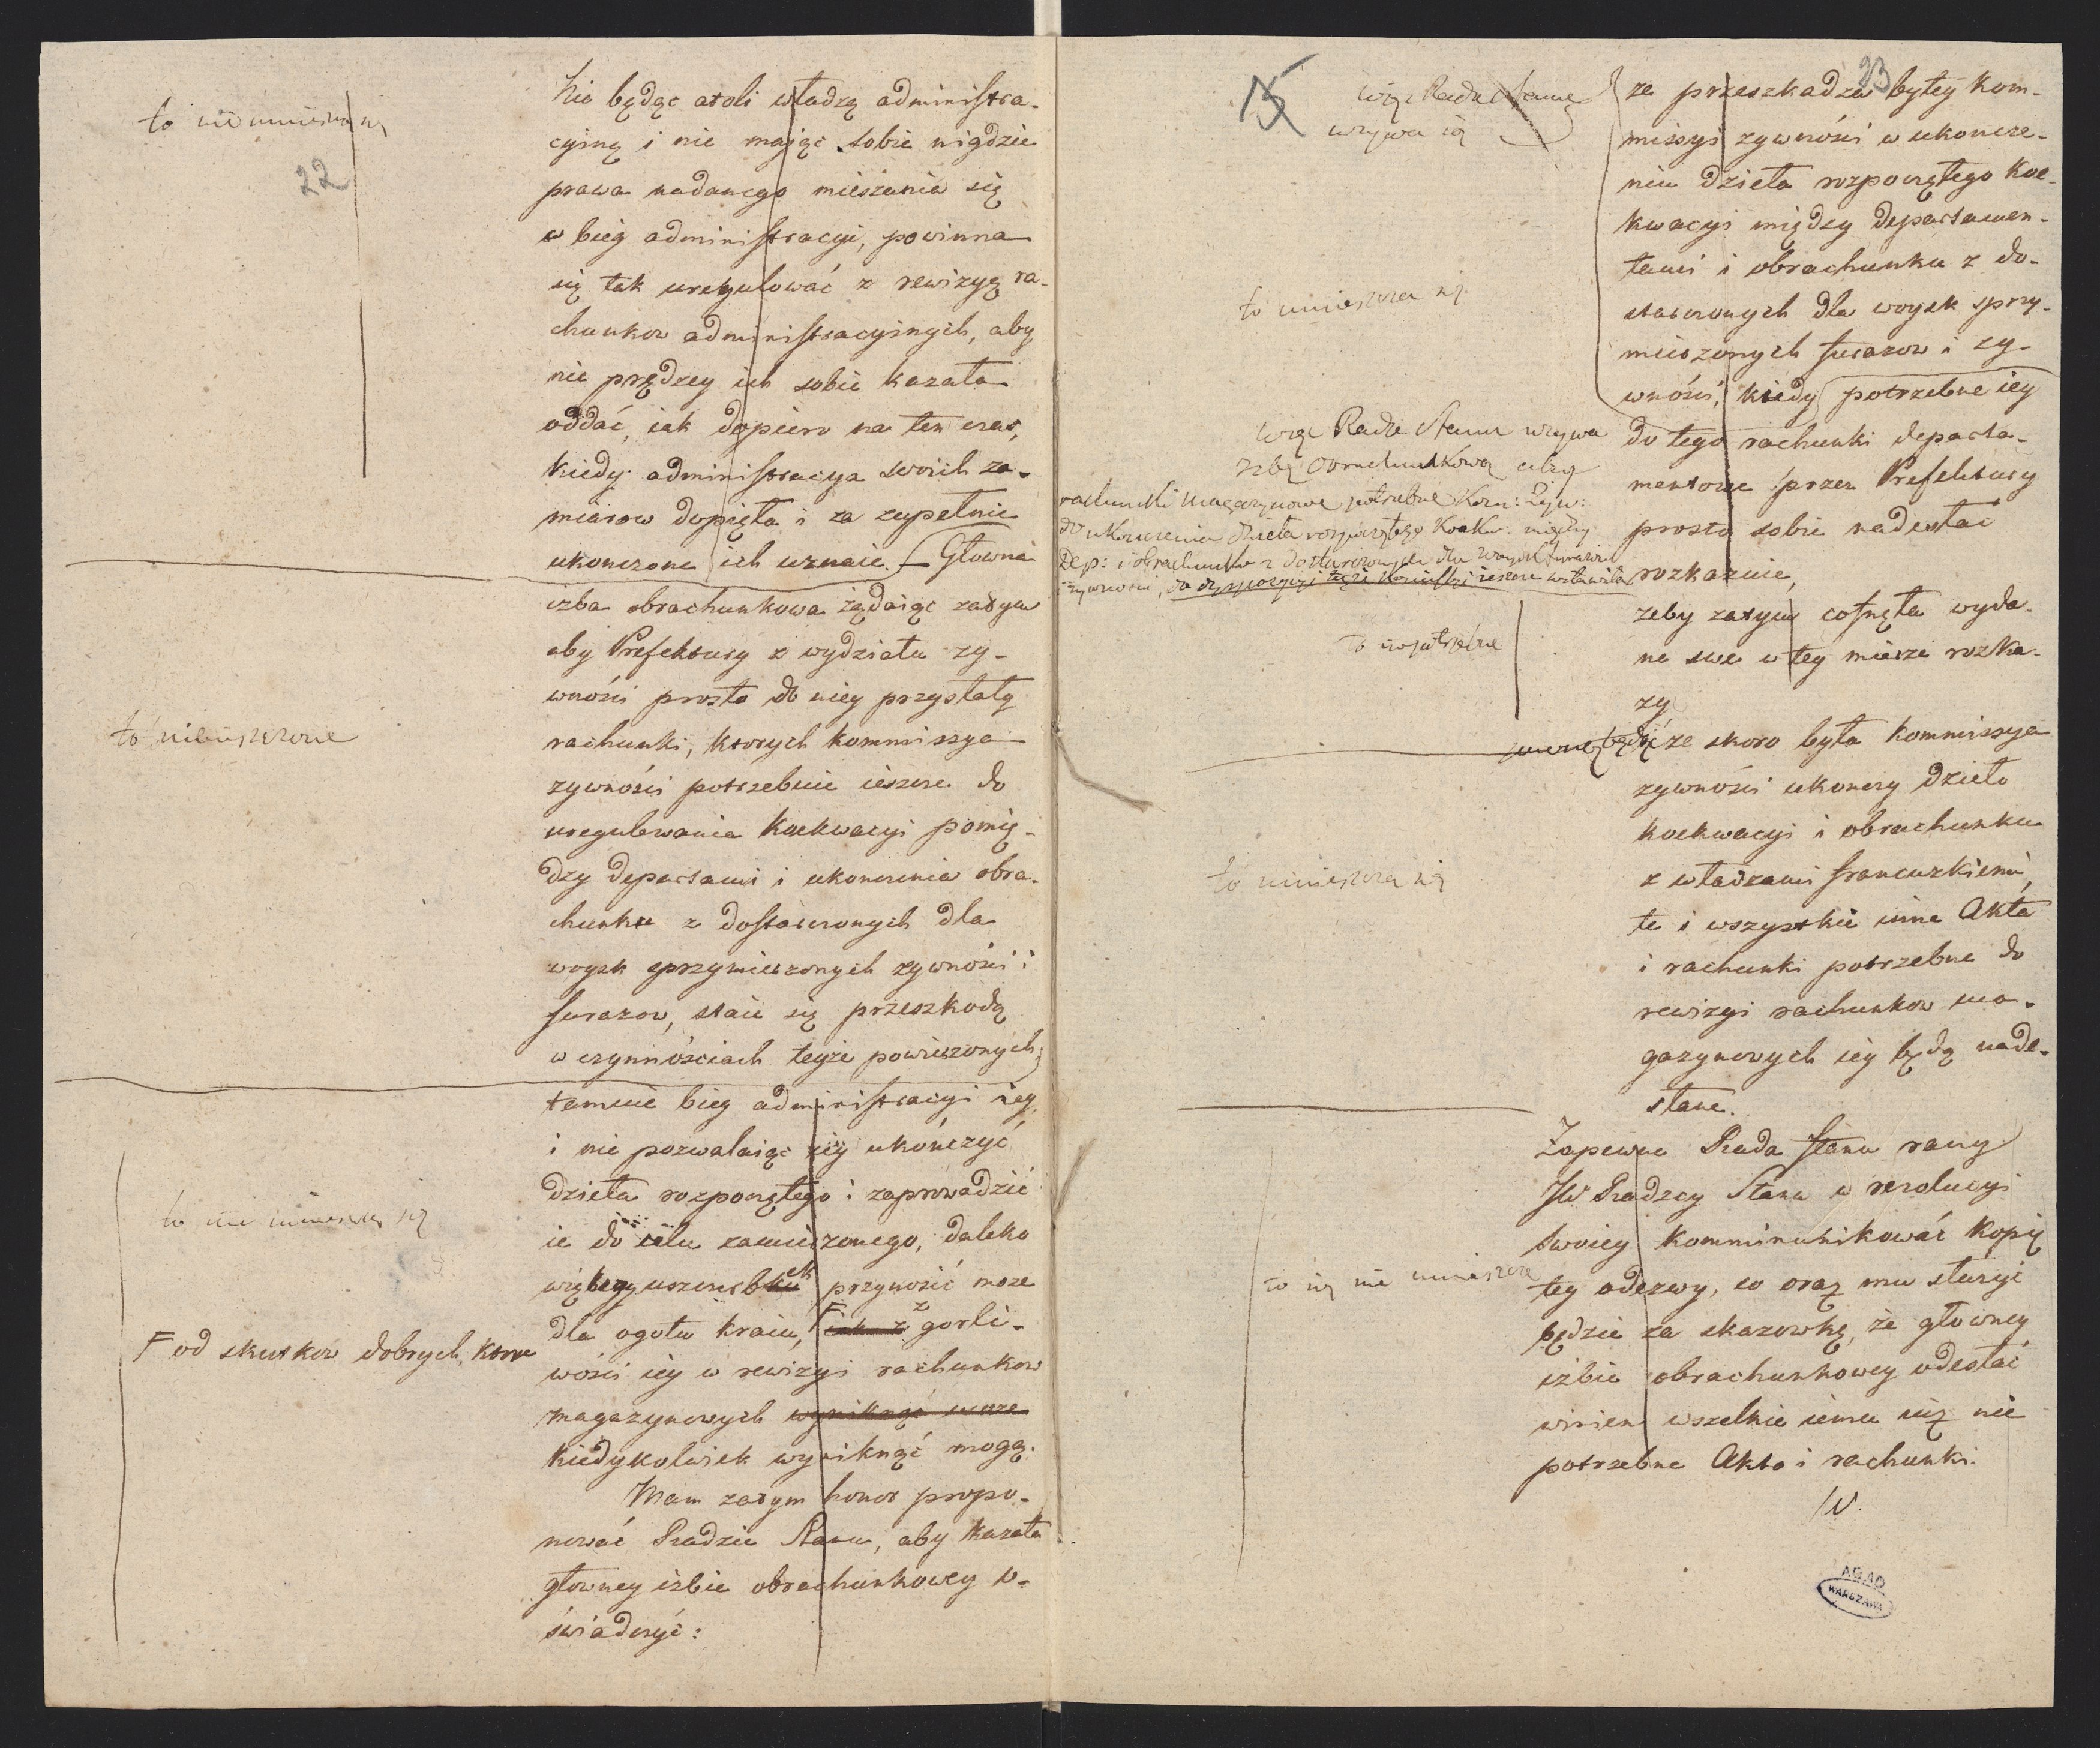 22
to nie umieszcza się
Nie będąc atoli władzą administra-
cyiną i nie mając sobie nigdzie
prawa nadanego mieszania się
w bieg administracyi, powinna
się tak uregulować z rewizyą ra-
chunkow administracyinych, aby
nie prędzey ich sobie kazała
oddać, iak dopiero na ten czas,
kiedy administracya swoich za-
miarow dopięła i za zupełnie
ukonczone ich uznaie. Główna
izba obrachunkowa żądaiąc zatym
aby Prefektury z wydziału ży-
wności prosto do niey przysłały
rachunki, ktorych kommissya
zywności potrzebuie ieszcze do
uregulowania koekwacyi pomię-
dzy departami i ukonczenia obra-
chunku z dostarczonych dla
woysk sprzymierzonych zywności i
furazow, staie się przeszkodą
w czynnościach teyże powierzonych;
to umieszczone
tamuie bieg administracyi iey,
i nie pozwalaiąc iey ukończyć
dzieła rozpoczętego i zaprowadzić
ie do celu zamierzonego, daleko
większy uszczerbek przynosić moze
dla ogołu kraiu, F iak z z gorli-
wości iey w rewizyi rachunkow
magazynowych wyniknąć moze
kiedykolwiek wyniknąć mogą.
to nie umieszcza się
F od skutkow dobrych, ktore
Mam zatym honor propo-
nować Radzie Stanu, aby kazała
główney izbie obrachunkowey o-
świadczyć:
15
23
więc Rada Stanu
wzywa ią
ze przeszkadza byłey kom-
missyi zywności w ukoncze-
niu dzieła rozpoczętego koe-
kwacyi między departamen-
tami i obrachunku z do-
starczonych dla woysk sprzy-
mierzonych furazow i zy-
wności, kiedy potrzebne iey
do tego rachunki departa-
mentowe przez Prefektury
prosto sobie nadesłać
rozkazuie,
to umieszcza się
więc Rada Stanu wzywa
Izbę Obrachunkową ażeby
rachunki magazynowe potrzebne Kom: Żyw:
do ukonczenia dzieła rozpoczętego Koekw: między
Dep: i obrachunku z dostarczonych dla Woysk furazow
i żywności, do dyspozycyi teyże kommissyi ieszcze zostawiła
zeby zatym cofnęła wyda-
ne swe w tey mierze rozka-
zy
to niepotrzebne
ze skoro była kommissya
zywności ukonczy dzieło
koekwacyi i obrachunku
z władzami francuzkiemi,
te i wszystkie inne Akta
i rachunki potrzebne do
rewizyi rachunkow ma-
gazynowych iey będą nade-
słane.
to umieszcza się
Zapewne Rada Stanu raczy
JW Radzcy Stanu w rezolucyi
swoiey kommunikować kopię
tey odezwy, co oraz mu służyć
będzie za skazowkę, że główney
izbie obrachunkowey odesłać
winien wszelkie iemu iuż nie
potrzebne Akta i rachunki.
to się nie umieszcza
AGAD
WARSZAWA